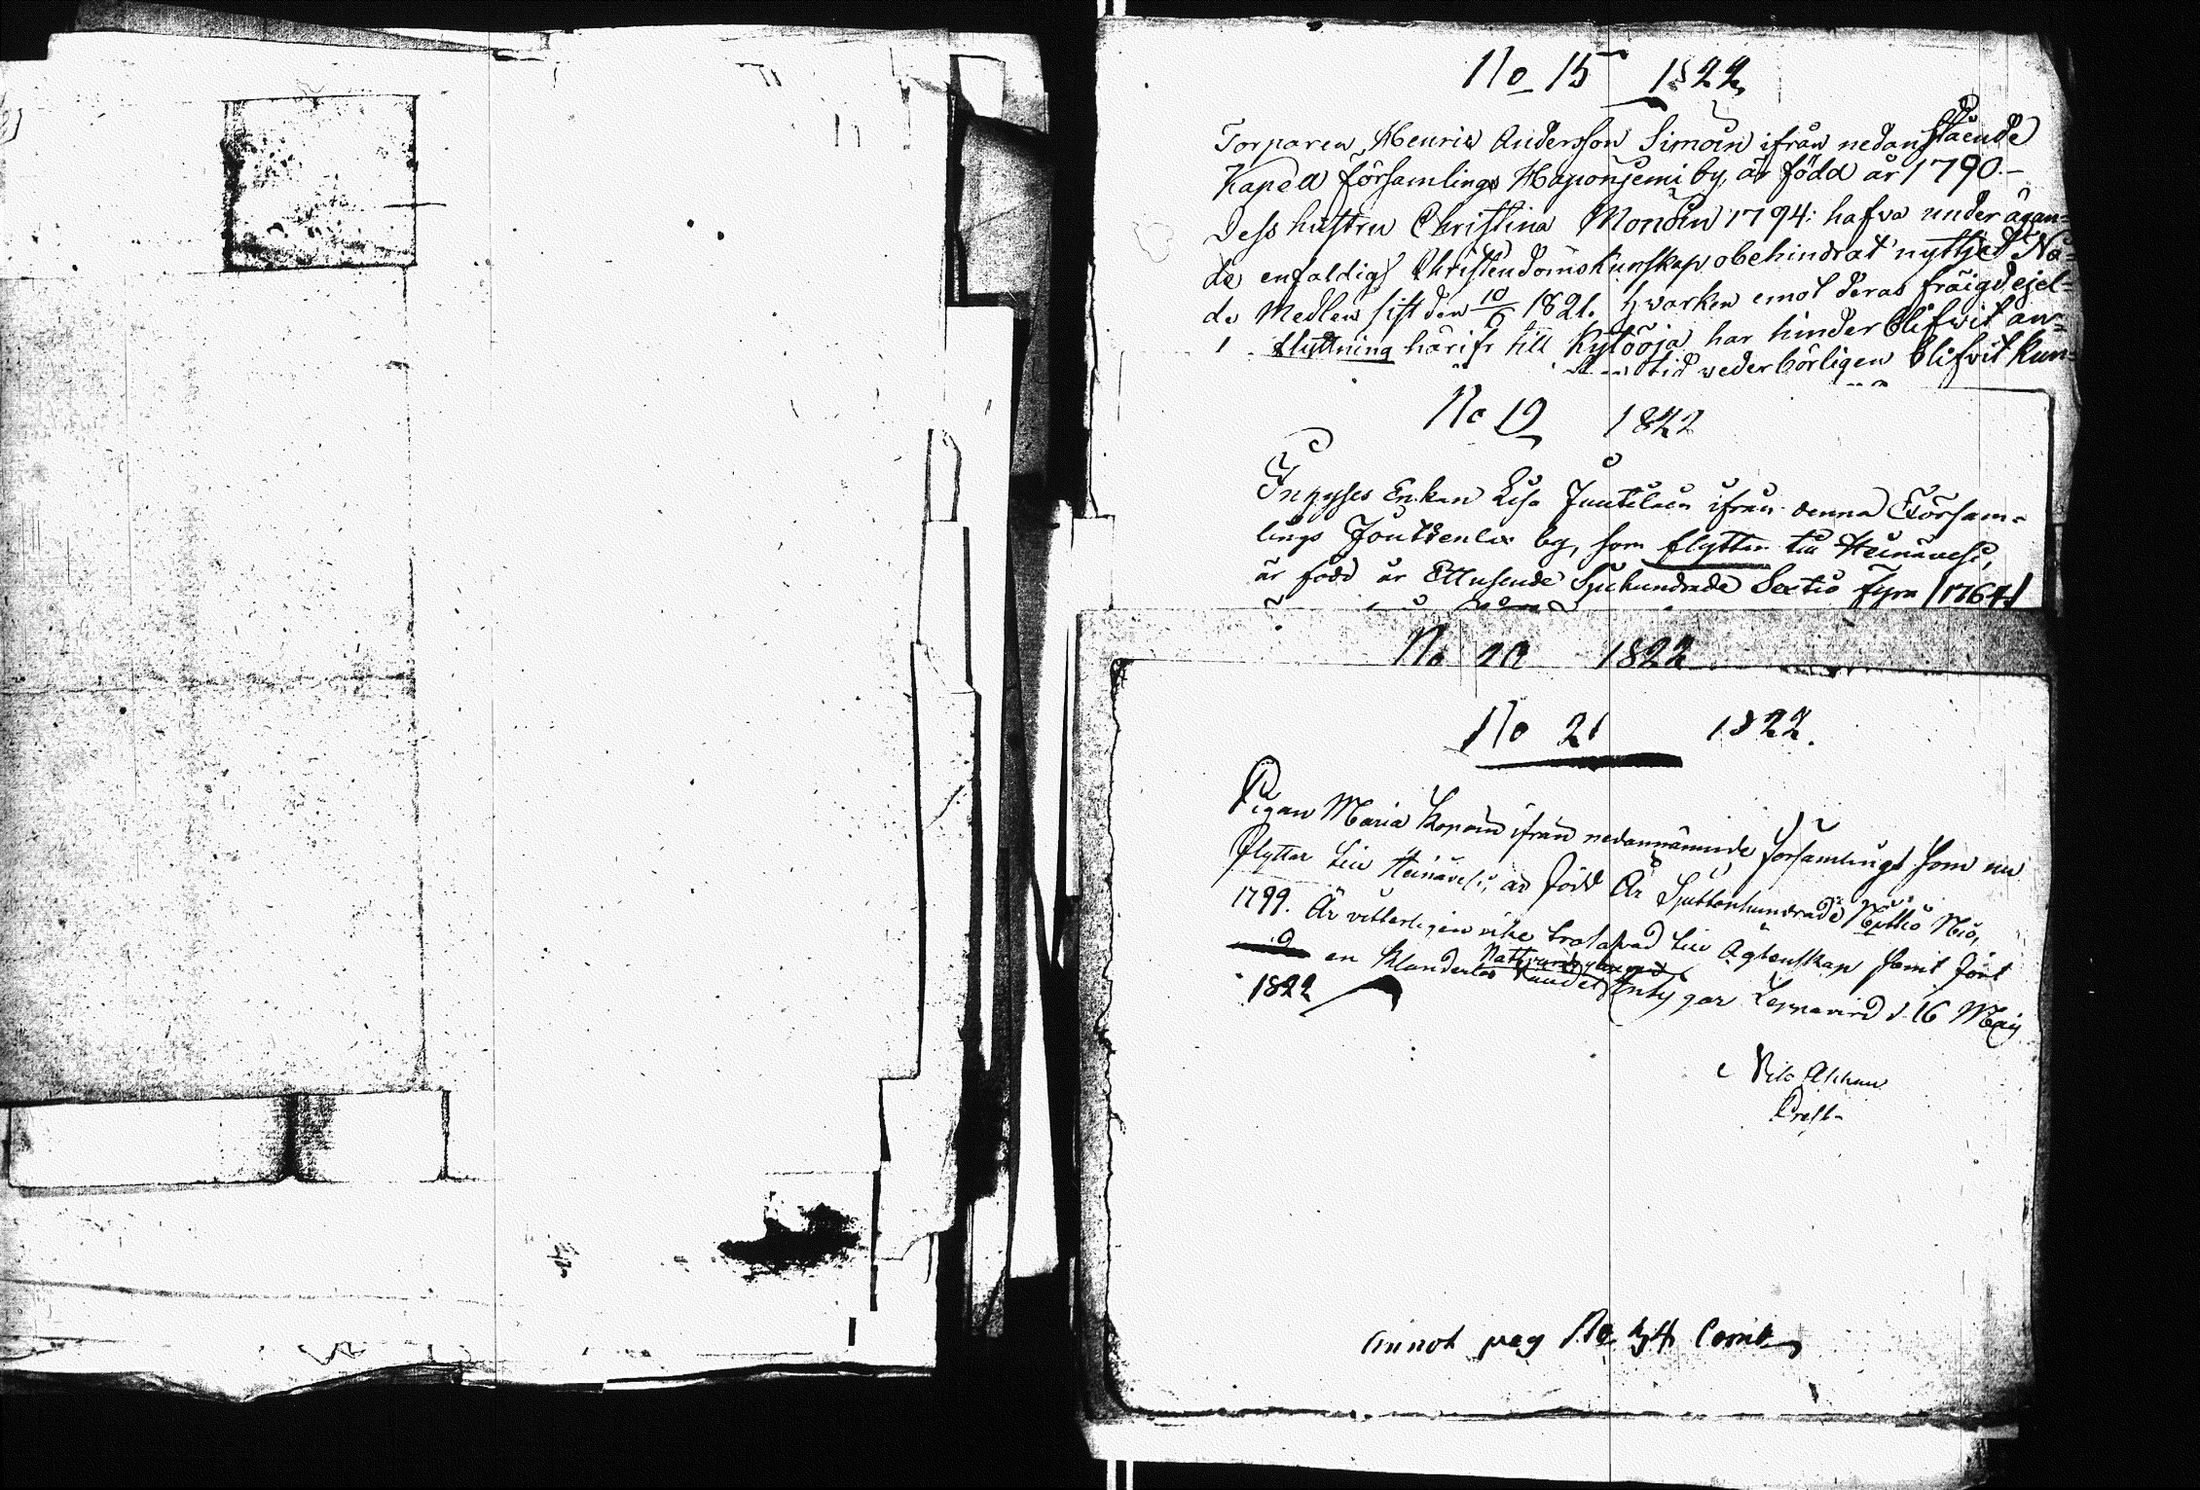 No 15 1822
Torparen Henric Andersson Simoin ifrån nedanstående
Kapell församlings Haponjemi by, är född år 1790.-
Dess hustru Christina Monoin 1794: hafva under ägan-
de enfaldig Christendoms kunskap obehindrat nyttjet Nå-
de Medlen sist den 10/6 1821. hvarken emot deras fräigd ejel-
flyttning härifr till Kylöoja har hinder blifwit an-
tid wederbörligen blifvit kun-
No 19 1822
Inhyses Enkan Lisa Juutilain ifrån denna Försam-
lings by, som flyttar till Heinävesi,
är född år Ettusende Sjuhundrade Sextio fyra /1764/
No 20 1822
No 21 1822.
Pigan Maria ifrån nedannämnde församling som nu
flyttar till Heinävesi, är född År Sjuttonhundrade Nittio Nio,
1799. Är vitterligen icke trolofvad till Ägtenskap samt fört
en Klanderlös Leppävird d. 16 Maij
1822
Nils
Prest-
Annot pag No 34